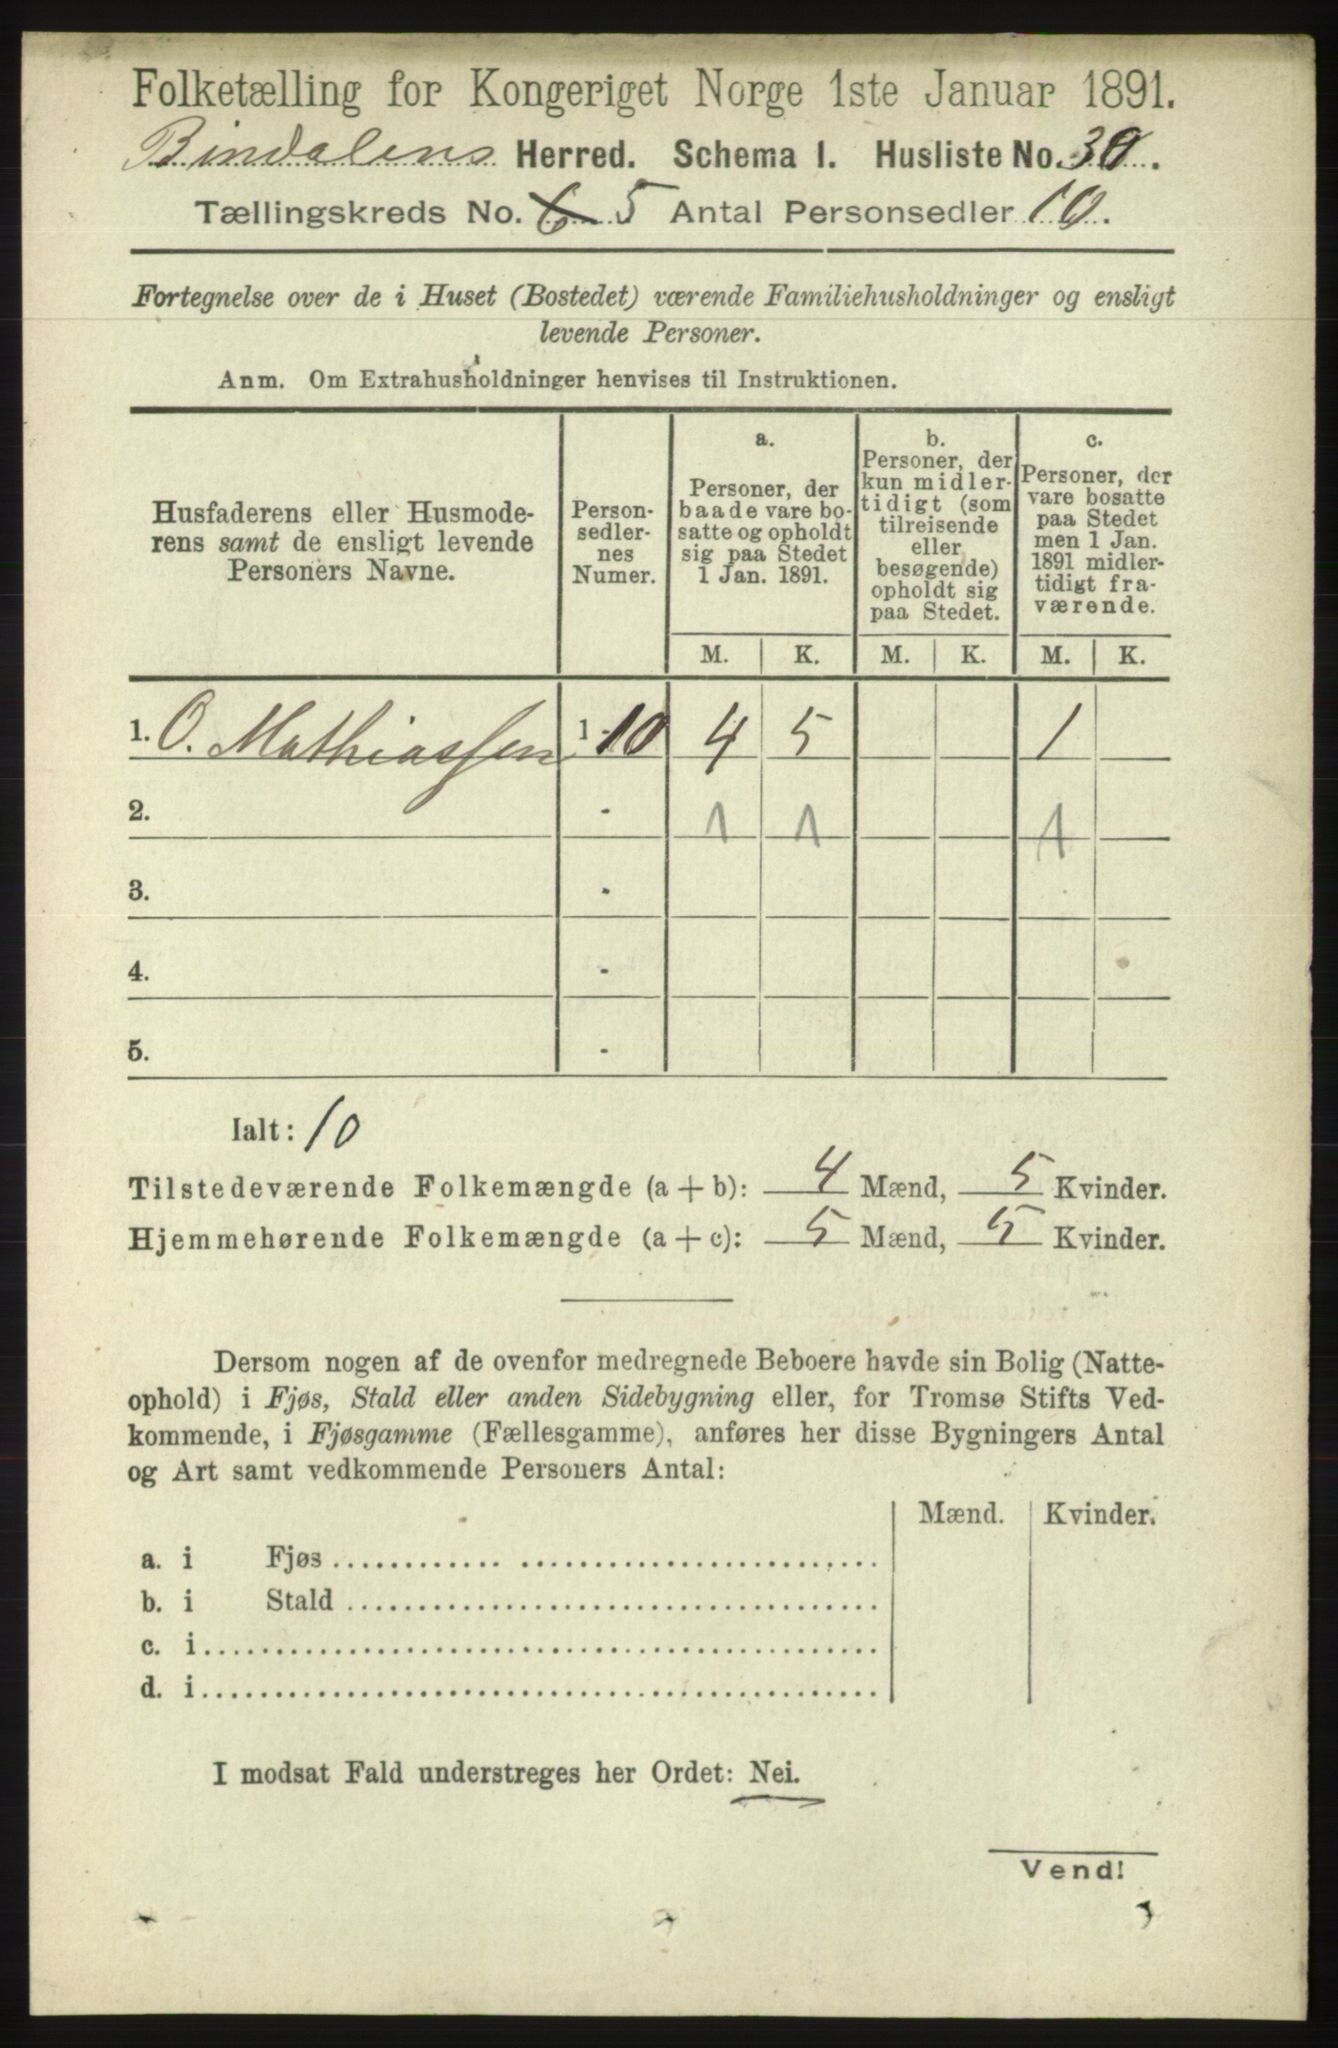 Folketælling for Kongeriget Norge 1ste Januar 1891.
Bindalens Herred. Schema 1. Husliste No. 30.
Tællingskreds No. 6 5 Antal Personsedler 10.
Fortegnelse over de i Huset (Bostedet) værende Familiehusholdninger og ensligt
levende Personer.
Anm. Om Extrahusholdninger henvises til Instruktionen.
Husfaderens eller Husmode-
rens samt de ensligt levende
Personers Navne.
Person-
sedler-
nes
Numer.
a.
Personer, der
baade vare bo-
satte og opholdt
sig paa Stedet
1 Jan. 1891.
b.
Personer, der
kun midler-
tidigt (som
tilreisende
eller
besøgende)
opholdt sig
paa Stedet.
c.
Personer, der
vare bosatte
paa Stedet
men 1 Jan.
1891 midler-
tidigt fra-
værende.
M. K. M. K. M. K.
1. O. Mathiassen 1 - 10 4 5 1
2. - 1 1 1
3. -
4. -
5. -
Ialt: 10
Tilstedeværende Folkemængde (a + b): 4 Mænd, 5 Kvinder.
Hjemmehørende Folkemængde (a + c): 5 Mænd, 5 Kvinder.
Dersom nogen af de ovenfor medregnede Beboere havde sin Bolig (Natte-
ophold) i Fjøs, Stald eller anden Sidebygning eller, for Tromsø Stifts Ved-
kommende, i Fjøsgamme (Fællesgamme), anføres her disse Bygningers Antal
og Art samt vedkommende Personers Antal:
Mænd. Kvinder.
a. i Fjøs
b. i Stald
c. i
d. i
I modsat Fald understreges her Ordet: Nei.
Vend!